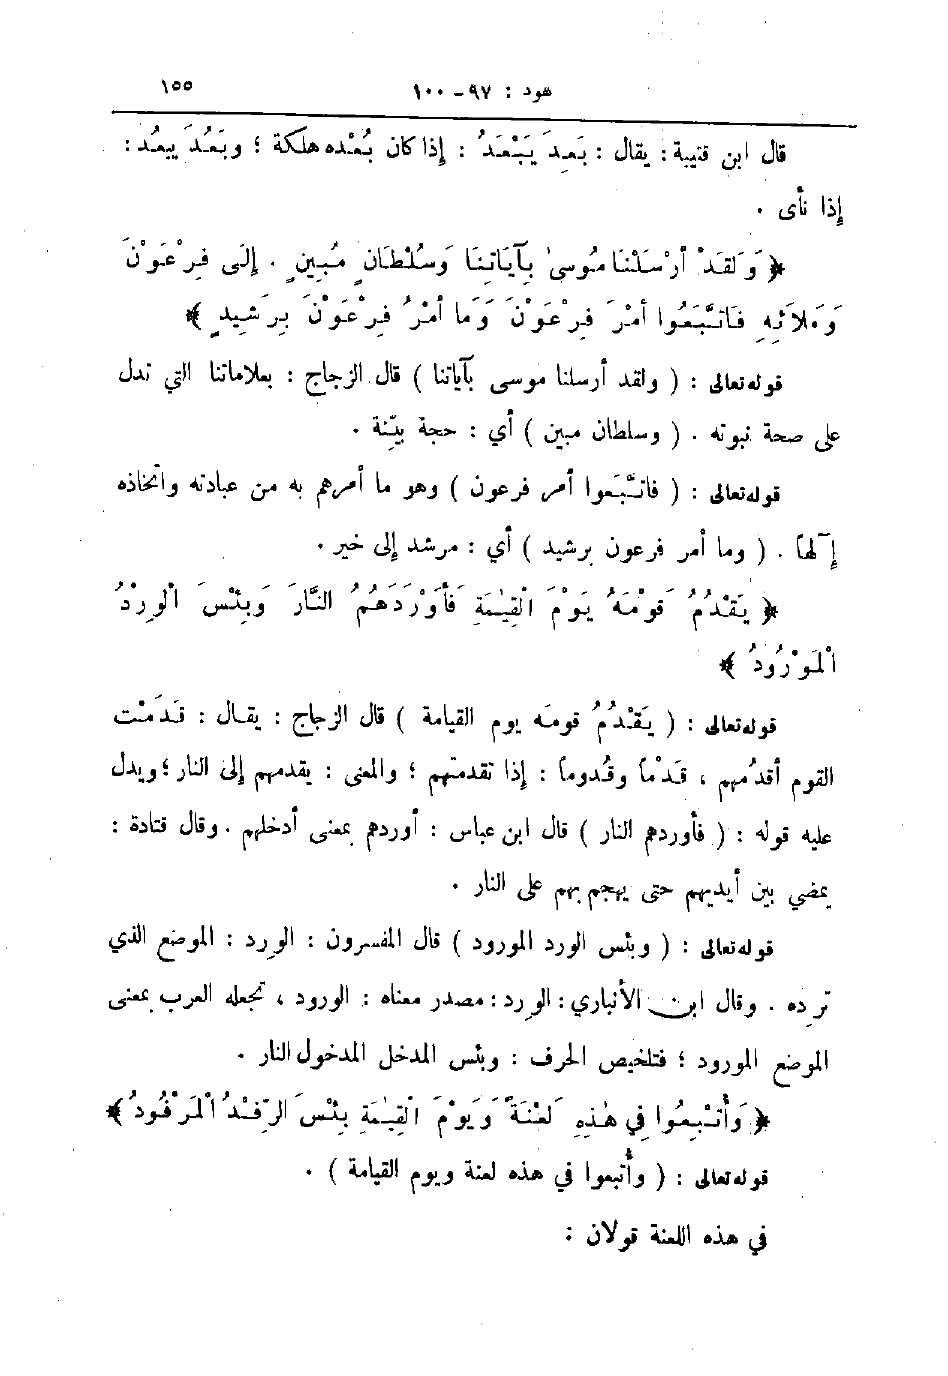 هود : ٩٧ - ١٠٠ ١٥٥
قال ابن قتيبة : يقال : بَعِدَ يَبْعَدُ : إذا كان بُعْده هلكة ؛ وبَعُدَ يبعُد :
إذا نأى .
﴿ وَلَقَدْ أَرْسَلْنَا مُوسىٰ بِآيَاتِنَا وَسُلْطَانٍ مُبِينٍ . إِلَى فِرْعَوْنَ
وَمَلَائِهِ فَاتَّبَعُوا أَمْرَ فِرْعَوْنَ وَمَا أَمْرُ فِرْعَوْنَ بِرَشِيدٍ ﴾
قوله تعالى : ( ولقد أرسلنا موسى بآياتنا ) قال الزجاج : بعلاماتنا التي تدل
على صحة نبوته . ( وسلطان مبين ) أي : حجة بيِّنة .
قوله تعالى : ( فاتَّبَعوا أمر فرعون ) وهو ما أمرهم به من عبادته واتخاذه
إِلهاً . ( وما أمر فرعون برشيد ) أي : مرشد إلى خير .
﴿ يَقْدُمُ قَوْمَهُ يَوْمَ الْقِيٰمَةِ فَأَوْرَدَهُمُ النَّارَ وَبِئْسَ الْوِرْدُ
الْمَوْرُودُ ﴾
قوله تعالى : ( يَقْدُمُ قومَه يوم القيامة ) قال الزجاج : يقال : قَدَمْت
القوم أقدُمهم ، قَدْماً وقُدوماً : إذا تقدمتهم ؛ والمعنى : يقدمهم إلى النار ؛ ويدل
عليه قوله : ( فأوردهم النار ) قال ابن عباس : أوردهم بمعنى أدخلهم . وقال قتادة :
يمضي بين أيديهم حتى يهجم بهم على النار .
قوله تعالى : ( وبئس الورد المورود ) قال المفسرون : الوِرد : الموضع الذي
تَرِده . وقال ابن الأنباري : الوِرد : مصدر معناه : الورود ، تجعله العرب بمعنى
الموضع المورود ؛ فتلخيص الحرف : وبئس المدخل المدخول النار .
﴿ وَأُتْبِعُوا فِي هٰذِهِ لَعْنَةً وَيَوْمَ الْقِيٰمَةِ بِئْسَ الرِّفْدُ الْمَرْفُودُ ﴾
قوله تعالى : ( وأُتبعوا في هذه لعنة ويوم القيامة ) .
في هذه اللعنة قولان :